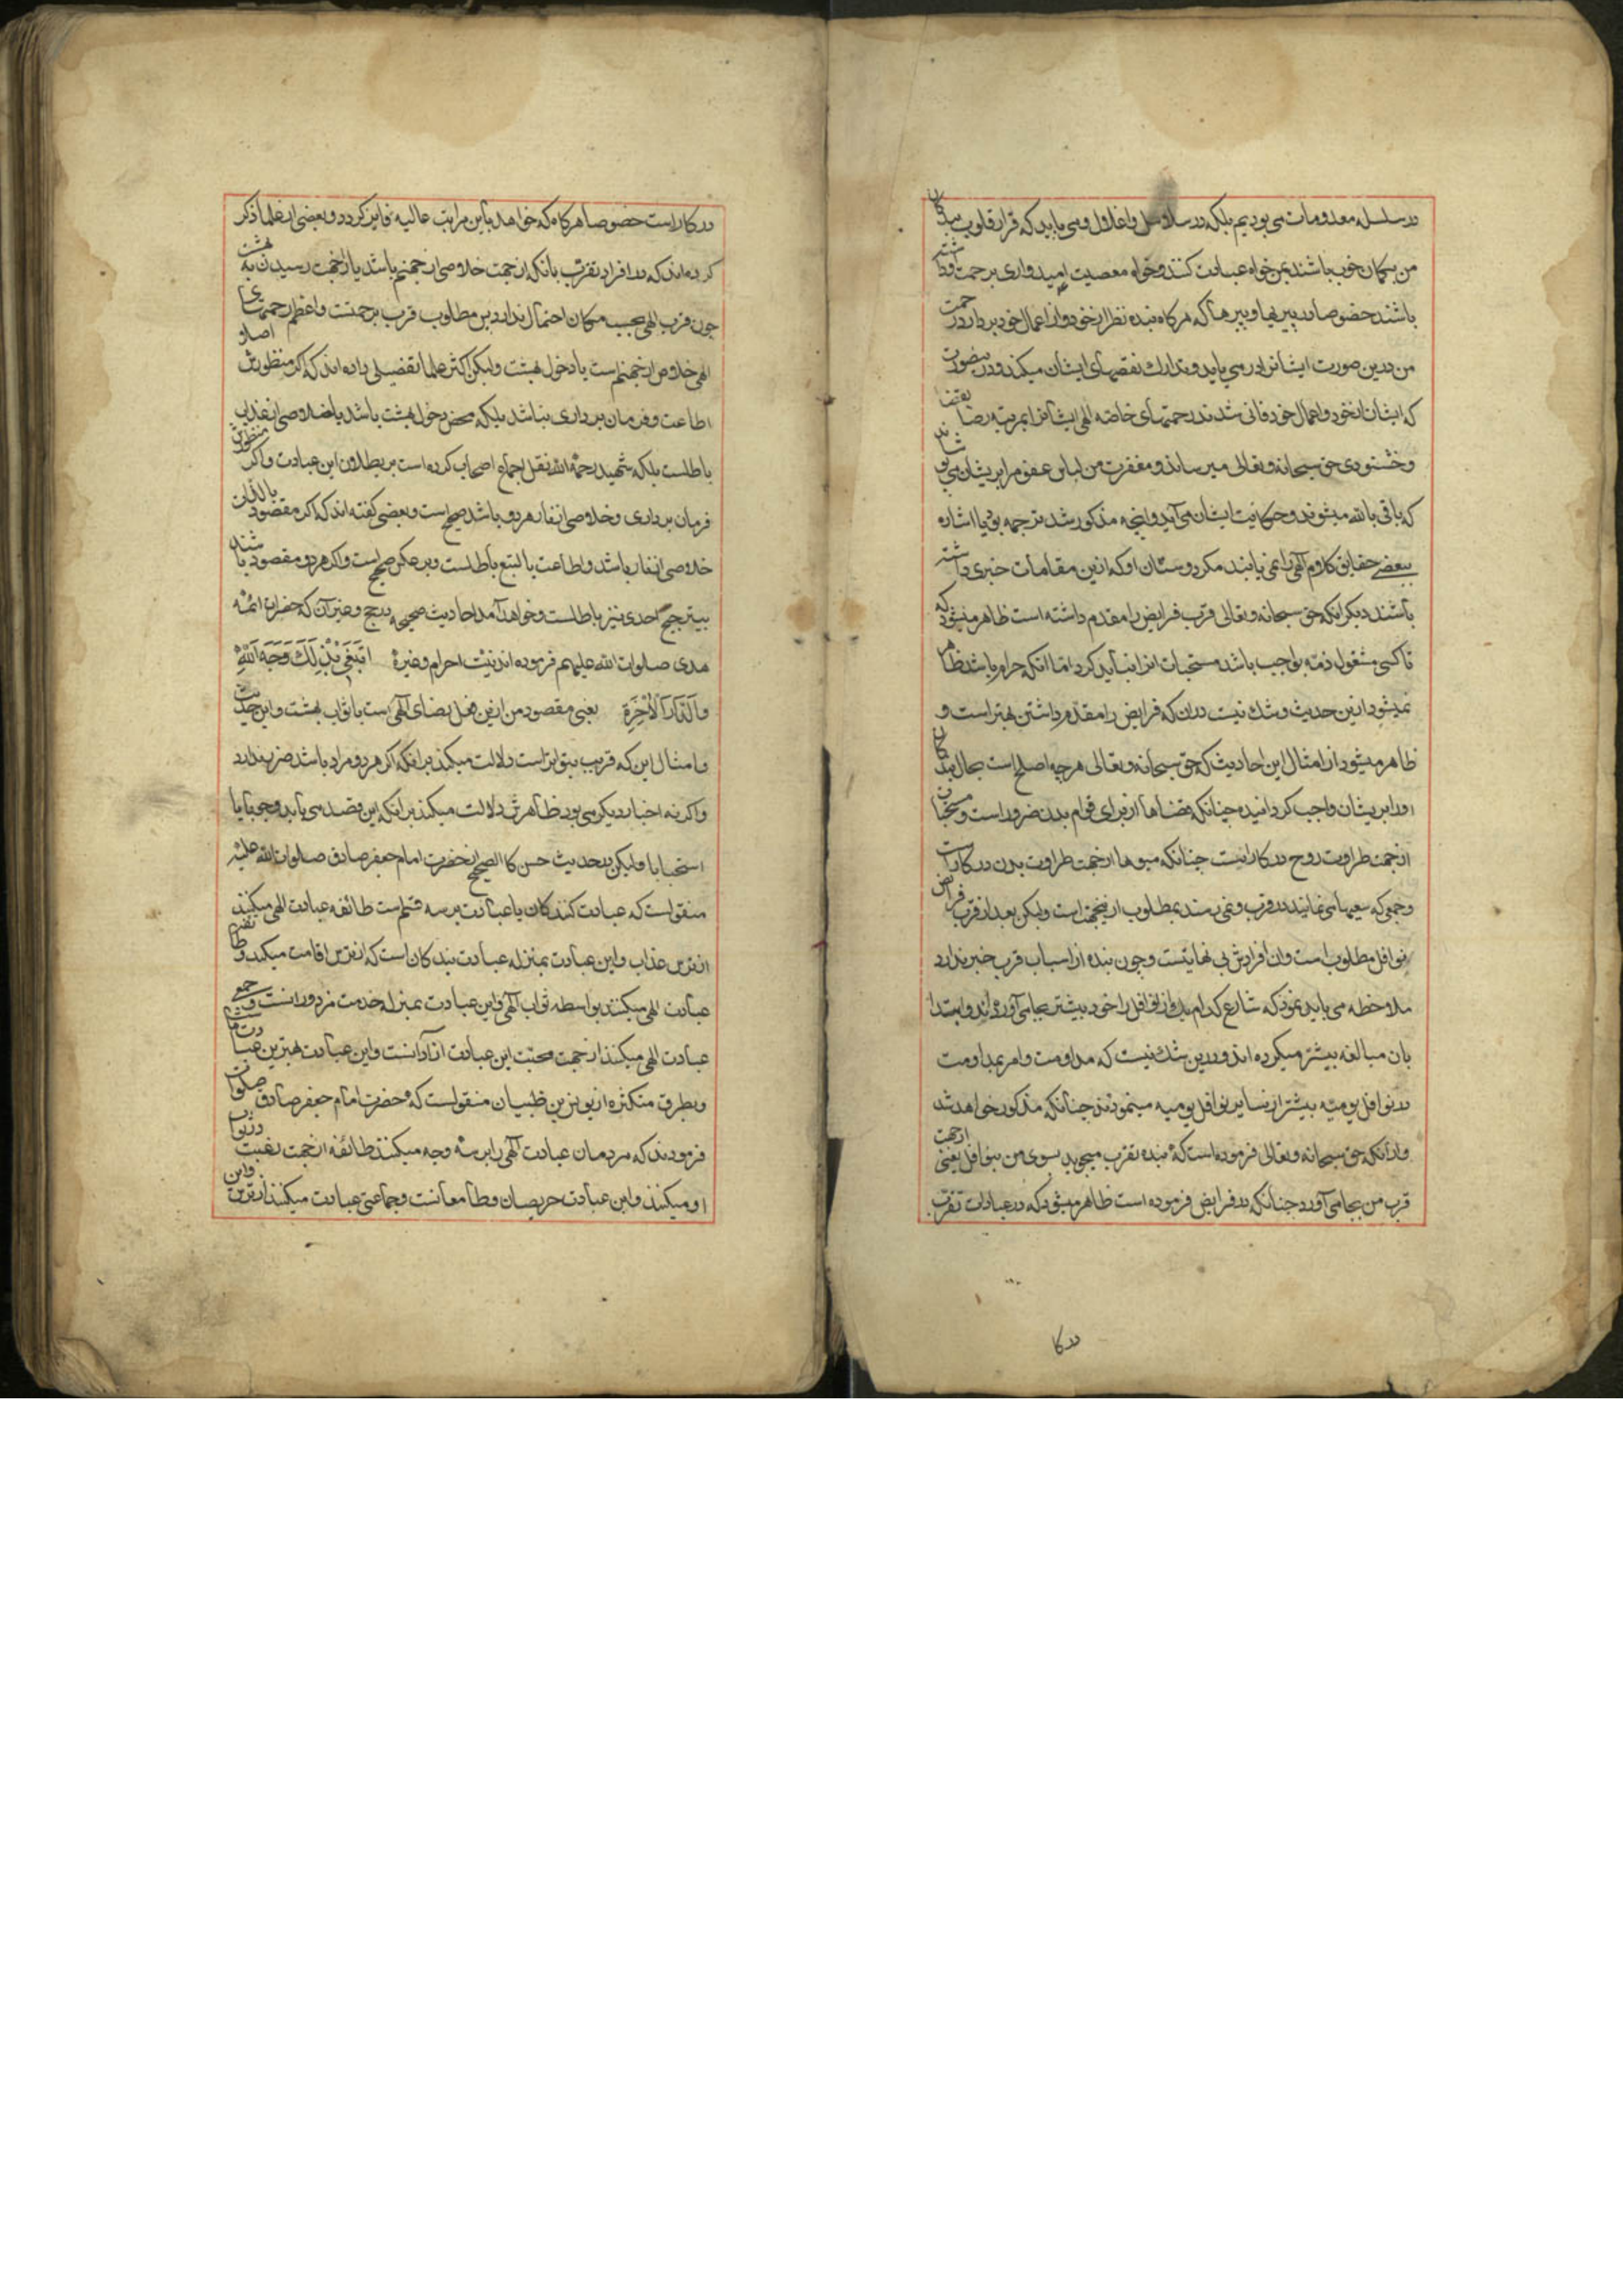 در سلسله معدومات می بودیم بلکه در سلاسل و اغلال و می باید که قرار قلوب بندکان
من بکمان خوب باشند بمن خواه عبادت کنند و خواه معصیت امیدواری برحمت من داشته
باشند خصوصا در پیریها و پیرها که هرکاه بنده نظر از خود و از اعمال خود بردارد رحمت
من درین صورت ایشانرا درمی یابد و تدارک نقصهای ایشان میکند و درینصورت
که ایشان از خود و اعمال خود فانی شدند رحمتهای خاصه الهی ایشانرا بمرتبه رضا
و خشنودی حق سبحانه و تعالی میرساند و مغفرت من لباس عفو مرا بریشان می پوشاند
که باقی بالله میشوند و حقانیت ایشان می آید و آنچه مذکور شد ترجمه بود با اشاره
ببعضی حقایق کلام الهی را نمی یابند مکر دوستان او که ازین مقامات خبری داشته
باشند دیکر آنکه حق سبحانه و تعالی قرب فرایض را مقدم داشته است ظاهر میشود که
تا کسی مشغول ذمه بواجب باشد مستحبات انرا نباید کرد اما انکه حرام باشد ظاهر
نمیشود ازین حدیث و شک نیست در آن که فرایض را مقدم داشتن بهتر است و
ظاهر میشود از امثال این احادیث که حق سبحانه و تعالی هرچه اصلح است بحال بندکان
او را بریشان واجب کردانیده چنانکه غذاها از برای قوام بدن ضرور است و مستحبات
از جهت طراوت روح در کار است چنانکه میوها از جهت طراوت بدن در کار است
و جمعی که سعیها می نمایند در قرب و نمی رسند بمطلوب ازینجهت است ولیکن بعد از قرب فرایض
نوافل مطلوب است و آن افرادش بی نهایتست و چون بنده از اسباب قرب خبر ندارد
ملاحظه می باید نمود که شارع کدام یک از نوافل را خود بیشتر بجا می آورده اند و امت را
بان مبالغه بیشتر میکرده اند و درین شک نیست که مداومت و امر بمداومت
در نوافل یومیه بیشتر از سایر نوافل یومیه مینمودند چنانکه مذکور خواهد شد
و از آنکه حق سبحانه و تعالی فرموده است که بنده تقرب میجوید بسوی من بنوافل یعنی از جهت
قرب من بجا می آورد چنانکه در فرایض فرموده است ظاهر میشود که در عبادات تقرب
درکا
در کار است خصوصا هرکاه که خواهد باین مراتب عالیه فایز کردد و بعضی از علما ذکر
کرده اند که در افراد تقرب بانکه از جهت خلاصی از جهنم باشد یا از جهت رسیدن به بهشت
چون قرب الهی بحسب مکان احتمال ندارد پس مطلوب قرب برحمتست و اعظم رحمتهای
الهی خلاص از جهنم است یا دخول بهشت ولیکن اکثر علما تفصیلی داده اند که اکر منظورش اصلا
اطاعت و فرمان برداری نباشد بلکه محض دخول بهشت باشد یا خلاصی از عذاب
باطلست بلکه شهید رحمه الله نقل اجماع اصحاب کرده است بر بطلان این عبادت و اکر منظورش
فرمان برداری و خلاصی از نار هر دو باشد صحیح است و بعضی کفته اند که اکر مقصود بالذات
خلاصی از نار باشد و اطاعت بالتبع باطلست و برعکس صحیح است و اکر هر دو مقصود باشند
بی ترجیح احدی نیز باطلست و خواهد آمد احادیث صحیحه در حج و غیر آن که حضرات ائمه
هدی صلوات الله علیهم فرموده اند در نیت احرام و غیره ابتغی بذلک وجه الله
والدار الاخرة یعنی مقصود من ازین فعل رضای الهی است با ثواب بهشت و این حدیث
و امثال این که قریب بتواتر است دلالت میکند بر انکه اکر هر دو مراد باشد ضرر ندارد
و اکر نه اخبار دیکر می بود ظاهرش دلالت میکند بر انکه این قصد می باید وجوبا یا
استحبابا ولیکن در حدیث حسن کالصحیح از حضرت امام جعفر صادق صلوات الله علیه
منقولست که عبادت کنندکان یا عبادت بر سه قسم است طائفه عبادت الهی میکنند
از ترس عذاب و این عبادت بمنزله عبادت بندکان است که از ترس اقامت میکند و طائفه
عبادت الهی میکنند بواسطه ثواب الهی و این عبادت بمنزله خدمت مزدورانست و جمعی
عبادت الهی میکنند از جهت محبت این عبادت ازادانست و این عبادت بهترین عبادتهاست
و بطرق متکثره از یونس بن ظبیان منقولست که حضرت امام جعفر صادق صلوات
فرمودند که مردمان عبادت الهی را بر سه وجه میکنند طائفه از جهت رغبت در ثواب
او میکنند و این عبادت حریصان و طامعانست و جماعتی عبادت میکنند از ترس و این